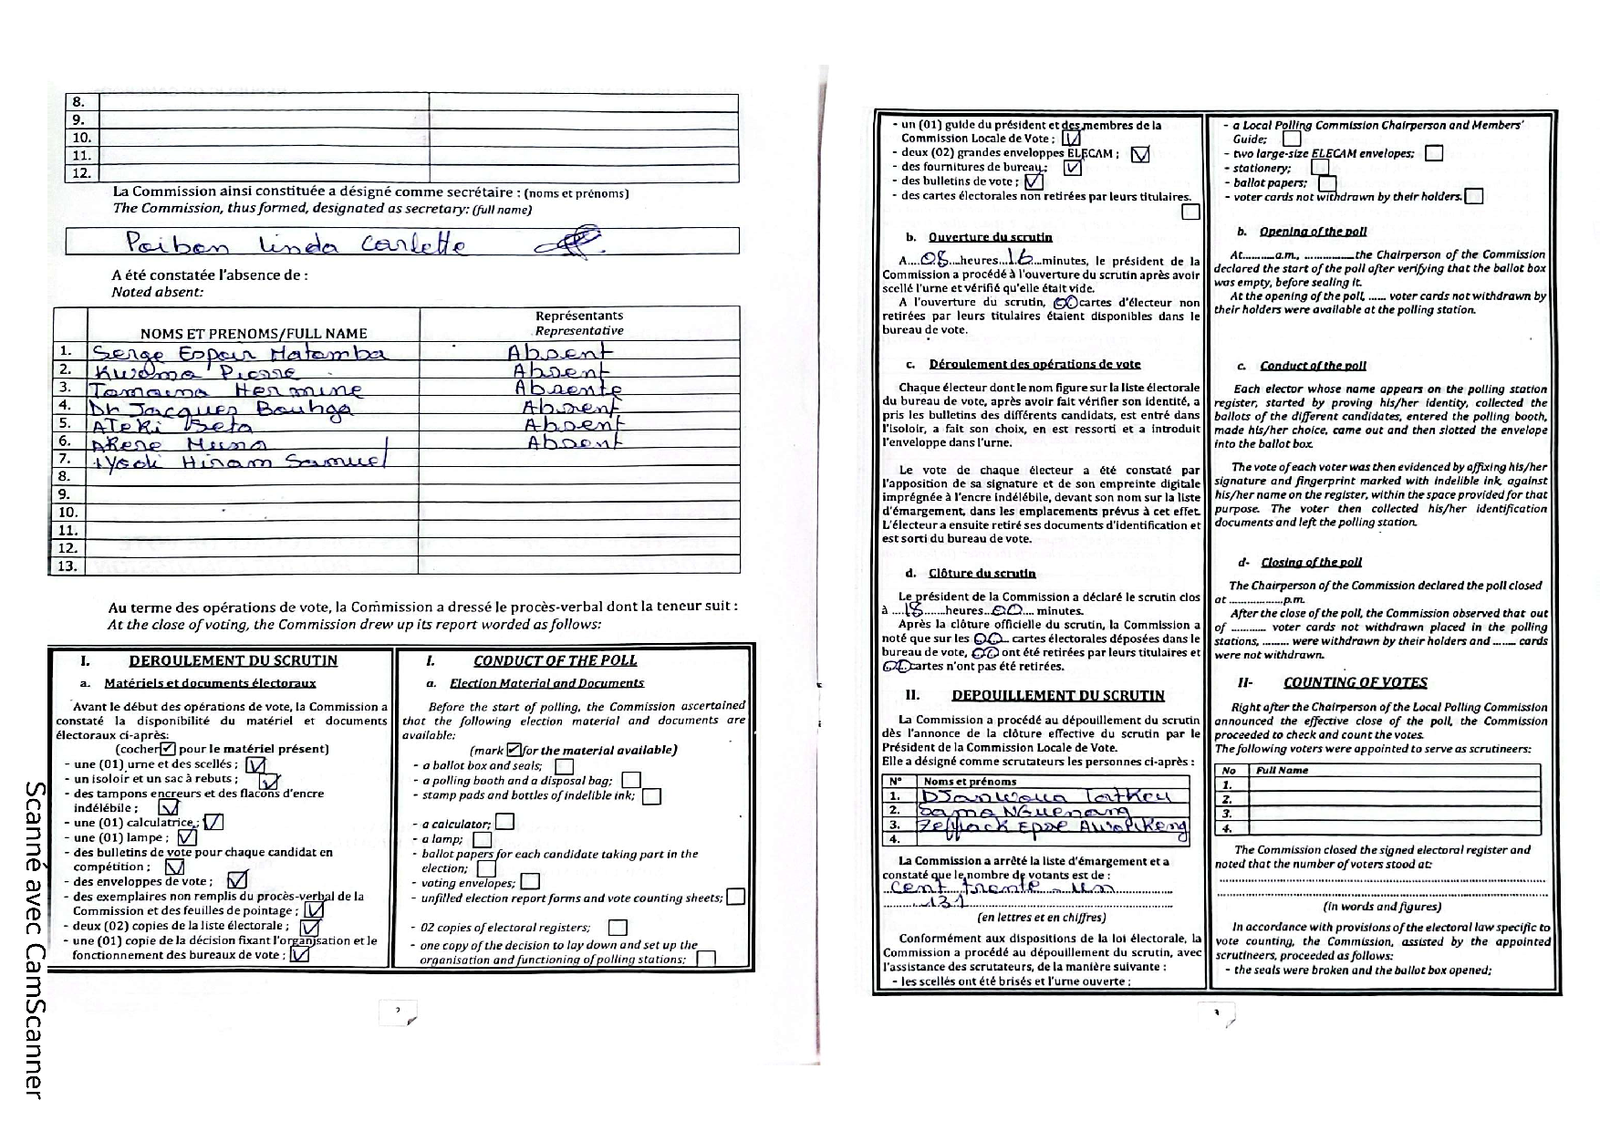 8.
9.
10.
11.
12.
La Commission ainsi constituée a désigné comme secrétaire : (noms et prénoms)
The Commission, thus formed, designated as secretary: (full name)
Poibon Linda Carlette
A été constatée l'absence de :
Noted absent:
NOMS ET PRENOMS/FULL NAME
Représentants
Representative
1. Serge Espoir Matomba Absent
2. Kwemo Pierre Absent
3. Tomaino Hermine Absente
4. Dr Jacques Bouhga Absent
5. Ateki Seta Absent
6. Akere Muna Absent
7. Iyodi Hiram Samuel
8.
9.
10.
11.
12.
13.
Au terme des opérations de vote, la Commission a dressé le procès-verbal dont la teneur suit :
At the close of voting, the Commission drew up its report worded as follows:
I. DEROULEMENT DU SCRUTIN
a. Matériels et documents électoraux
Avant le début des opérations de vote, la Commission a
constaté la disponibilité du matériel et documents
électoraux ci-après:
(cocher ☑ pour le matériel présent)
- une (01) urne et des scellés ; ☑
- un isoloir et un sac à rebuts ; ☑
- des tampons encreurs et des flacons d'encre
indélébile ; ☑
- une (01) calculatrice ; ☑
- une (01) lampe ; ☑
- des bulletins de vote pour chaque candidat en
compétition ; ☑
- des enveloppes de vote ; ☑
- des exemplaires non remplis du procès-verbal de la
Commission et des feuilles de pointage ; ☑
- deux (02) copies de la liste électorale ; ☑
- une (01) copie de la décision fixant l'organisation et le
fonctionnement des bureaux de vote ; ☑
I. CONDUCT OF THE POLL
a. Election Material and Documents
Before the start of polling, the Commission ascertained
that the following election material and documents are
available:
(mark ☑ for the material available)
- a ballot box and seals; ☐
- a polling booth and a disposal bag; ☐
- stamp pads and bottles of indelible ink; ☐
- a calculator; ☐
- a lamp; ☐
- ballot papers for each candidate taking part in the
election; ☐
- voting envelopes; ☐
- unfilled election report forms and vote counting sheets; ☐
- 02 copies of electoral registers; ☐
- one copy of the decision to lay down and set up the
organisation and functioning of polling stations; ☐
2
- un (01) guide du président et des membres de la
Commission Locale de Vote ; ☑
- deux (02) grandes enveloppes ELECAM ; ☑
- des fournitures de bureau ; ☑
- des bulletins de vote ; ☑
- des cartes électorales non retirées par leurs titulaires.
☐
b. Ouverture du scrutin
A....08...heures...16...minutes, le président de la
Commission a procédé à l'ouverture du scrutin après avoir
scellé l'urne et vérifié qu'elle était vide.
A l'ouverture du scrutin, 00 cartes d'électeur non
retirées par leurs titulaires étaient disponibles dans le
bureau de vote.
c. Déroulement des opérations de vote
Chaque électeur dont le nom figure sur la liste électorale
du bureau de vote, après avoir fait vérifier son identité, a
pris les bulletins des différents candidats, est entré dans
l'isoloir, a fait son choix, en est ressorti et a introduit
l'enveloppe dans l'urne.
Le vote de chaque électeur a été constaté par
l'apposition de sa signature et de son empreinte digitale
imprégnée à l'encre indélébile, devant son nom sur la liste
d'émargement, dans les emplacements prévus à cet effet.
L'électeur a ensuite retiré ses documents d'identification et
est sorti du bureau de vote.
d. Clôture du scrutin
Le président de la Commission a déclaré le scrutin clos
à ....18.......heures....00.... minutes.
Après la clôture officielle du scrutin, la Commission a
noté que sur les 00 cartes électorales déposées dans le
bureau de vote, 00 ont été retirées par leurs titulaires et
00 cartes n'ont pas été retirées.
II. DEPOUILLEMENT DU SCRUTIN
La Commission a procédé au dépouillement du scrutin
dès l'annonce de la clôture effective du scrutin par le
Président de la Commission Locale de Vote.
Elle a désigné comme scrutateurs les personnes ci-après :
N° Noms et prénoms
1. Djanwoua Tatkeu
2. Sama Nguenang
3. Zeffack Epse
4.
La Commission a arrêté la liste d'émargement et a
constaté que le nombre de votants est de :
cent trente - un
131
(en lettres et en chiffres)
Conformément aux dispositions de la loi électorale, la
Commission a procédé au dépouillement du scrutin, avec
l'assistance des scrutateurs, de la manière suivante :
- les scellés ont été brisés et l'urne ouverte ;
- a Local Polling Commission Chairperson and Members'
Guide; ☐
- two large-size ELECAM envelopes; ☐
- stationery; ☐
- ballot papers; ☐
- voter cards not withdrawn by their holders. ☐
b. Opening of the poll
At..........a.m., ...............the Chairperson of the Commission
declared the start of the poll after verifying that the ballot box
was empty, before sealing it.
At the opening of the poll, ...... voter cards not withdrawn by
their holders were available at the polling station.
c. Conduct of the poll
Each elector whose name appears on the polling station
register, started by proving his/her identity, collected the
ballots of the different candidates, entered the polling booth,
made his/her choice, came out and then slotted the envelope
into the ballot box.
The vote of each voter was then evidenced by affixing his/her
signature and fingerprint marked with indelible ink, against
his/her name on the register, within the space provided for that
purpose. The voter then collected his/her identification
documents and left the polling station.
d- Closing of the poll
The Chairperson of the Commission declared the poll closed
at ..................p.m.
After the close of the poll, the Commission observed that out
of ............ voter cards not withdrawn placed in the polling
stations, ........ were withdrawn by their holders and ........ cards
were not withdrawn.
II- COUNTING OF VOTES
Right after the Chairperson of the Local Polling Commission
announced the effective close of the poll, the Commission
proceeded to check and count the votes.
The following voters were appointed to serve as scrutineers:
No Full Name
1.
2.
3.
4.
The Commission closed the signed electoral register and
noted that the number of voters stood at:
(in words and figures)
In accordance with provisions of the electoral law specific to
vote counting, the Commission, assisted by the appointed
scrutineers, proceeded as follows:
- the seals were broken and the ballot box opened;
3
Scanné avec CamScanner